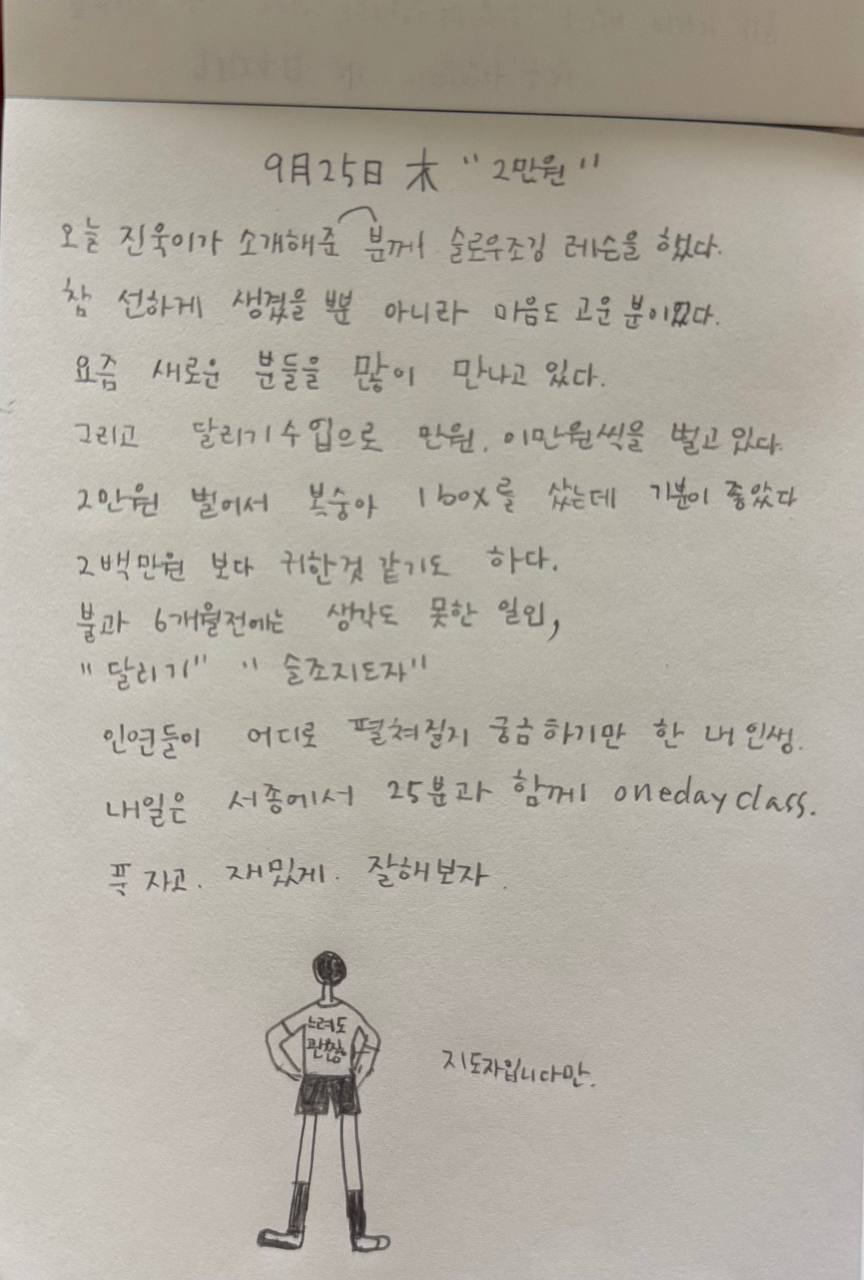 9月25日 木 "2만원"
오늘 진욱이가 소개해준 분께 슬로우조깅 레슨을 했다.
참 선하게 생겼을 뿐 아니라 마음도 고운 분이였다.
요즘 새로운 분들을 많이 만나고 있다.
그리고 달리기수업으로 만원, 이만원씩을 벌고있다.
2만원 벌어서 복숭아 1box를 샀는데 기분이 좋았다
2백만원 보다 귀한것 같기도 하다.
불과 6개월전에는 생각도 못한 일인,
"달리기" "슬조지도자"
인연들이 어디로 펼쳐질지 궁금하기만 한 내인생.
내일은 서종에서 25분과 함께 oneday class.
푹 자고. 재밌게. 잘해보자.
느려도
괜찮아
지도자입니다만.